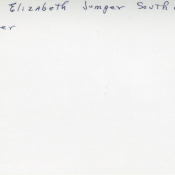 Elizabeth Jumper South
er